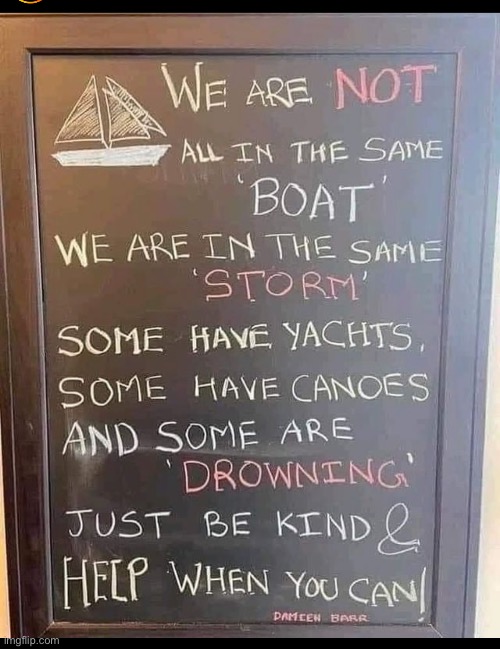 WE ARE NOT
ALL IN THE SAME
'BOAT'
WE ARE IN THE SAME
'STORM'
SOME HAVE YACHTS,
SOME HAVE CANOES
AND SOME ARE
'DROWNING'
JUST BE KIND &
HELP WHEN YOU CAN!
DAMIEN BARR
imgflip.com